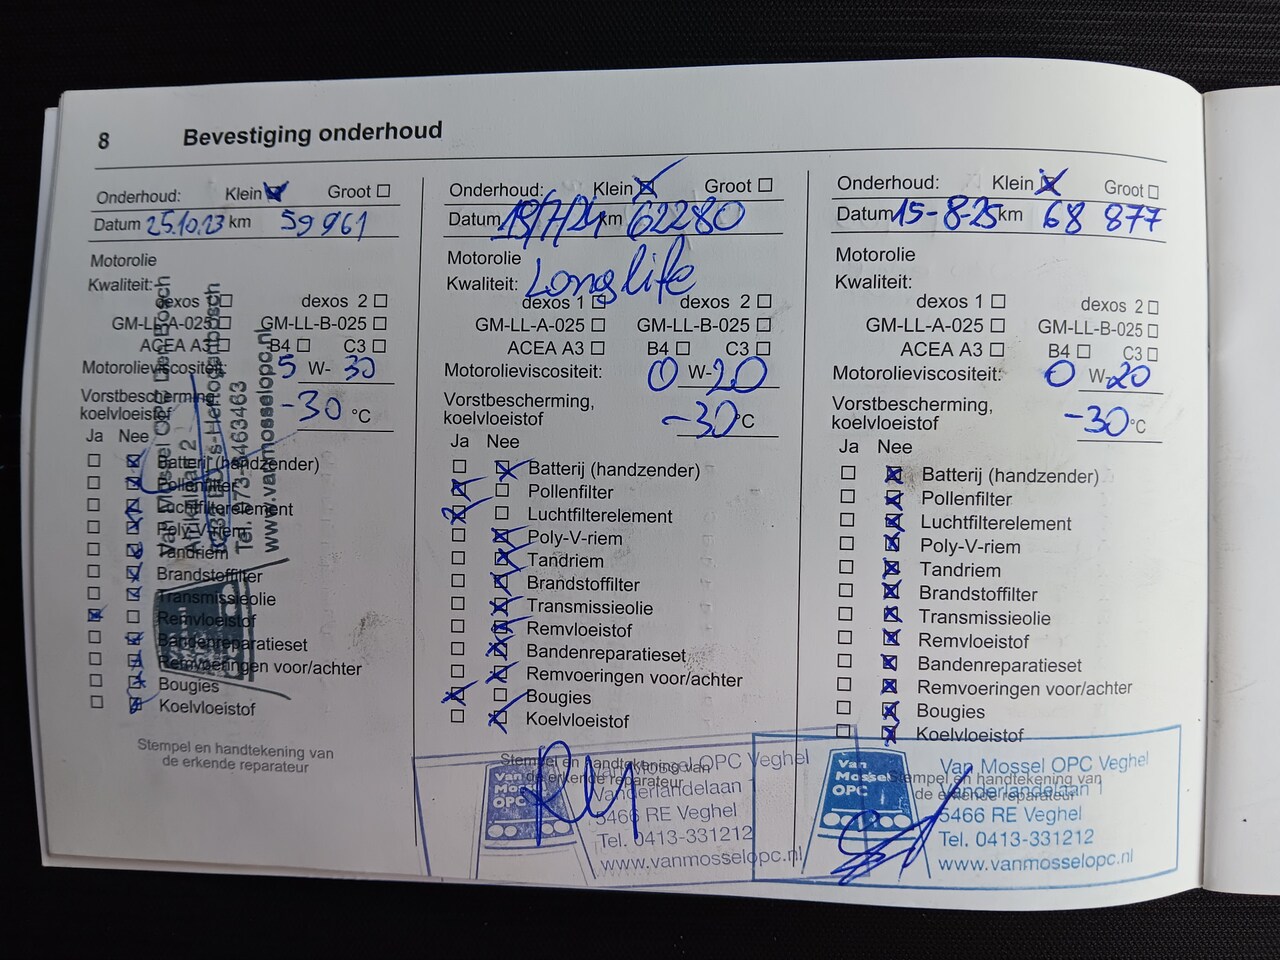 8 Bevestiging onderhoud
Onderhoud: Klein Groot
Datum 25.10.23 km 59 961
Motorolie
Kwaliteit:
dexos dexos 2
GM-LL-A-025 GM-LL-B-025
ACEA A3 B4 C3
Motorolieviscositeit: 5 W- 30
Vorstbescherming,
koelvloeistof -30 °C
Ja Nee
Batterij (handzender)
Pollenfilter
Luchtfilterelement
Poly-V-riem
Tandriem
Brandstoffilter
Transmissieolie
Remvloeistof
Bandenreparatieset
Remvoeringen voor/achter
Bougies
Koelvloeistof
Stempel en handtekening van
de erkende reparateur
Van Mossel OPC Den Bosch
Tel. 073-6463463
www.vanmosselopc.nl
Onderhoud: Klein Groot
Datum 19/7/24 km 62280
Motorolie
Kwaliteit: Longlife
dexos 1 dexos 2
GM-LL-A-025 GM-LL-B-025
ACEA A3 B4 C3
Motorolieviscositeit: 0 W-20
Vorstbescherming,
koelvloeistof -30 °C
Ja Nee
Batterij (handzender)
Pollenfilter
Luchtfilterelement
Poly-V-riem
Tandriem
Brandstoffilter
Transmissieolie
Remvloeistof
Bandenreparatieset
Remvoeringen voor/achter
Bougies
Koelvloeistof
Stempel en handtekening van
de erkende reparateur
Van Mossel OPC
Van Mossel OPC Veghel
Vanderlandelaan 1
5466 RE Veghel
Tel. 0413-331212
www.vanmosselopc.nl
Onderhoud: Klein Groot
Datum 15-8-25 km 68 877
Motorolie
Kwaliteit:
dexos 1 dexos 2
GM-LL-A-025 GM-LL-B-025
ACEA A3 B4 C3
Motorolieviscositeit: 0 W-20
Vorstbescherming,
koelvloeistof -30 °C
Ja Nee
Batterij (handzender)
Pollenfilter
Luchtfilterelement
Poly-V-riem
Tandriem
Brandstoffilter
Transmissieolie
Remvloeistof
Bandenreparatieset
Remvoeringen voor/achter
Bougies
Koelvloeistof
Stempel en handtekening van
de erkende reparateur
Van
Mossel
OPC
Van Mossel OPC Veghel
Vanderlandelaan 1
5466 RE Veghel
Tel. 0413-331212
www.vanmosselopc.nl